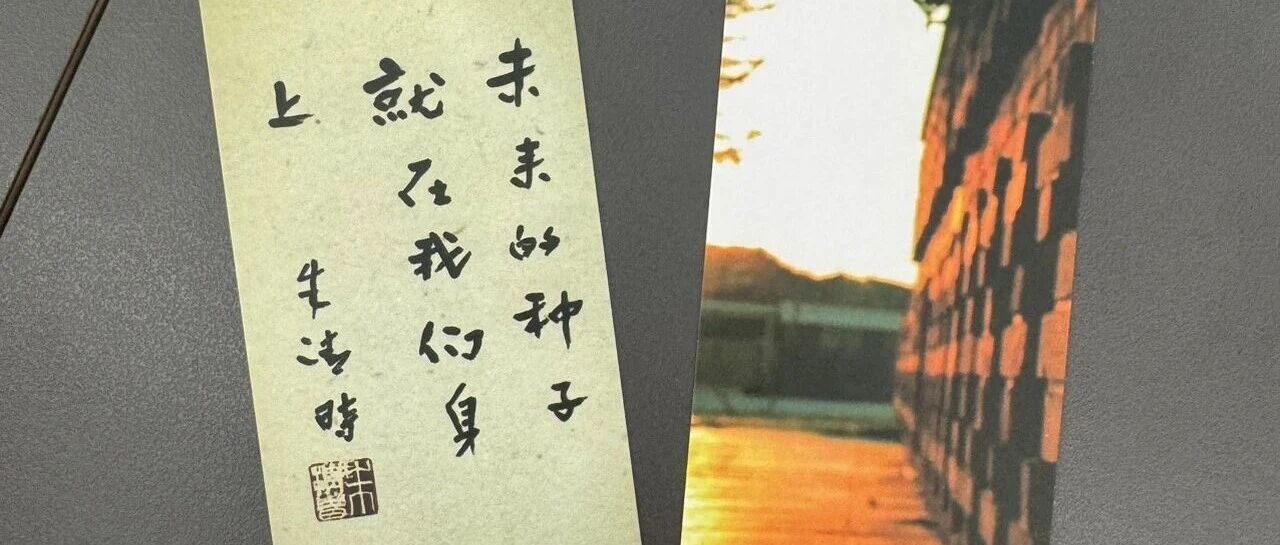 未来的种子
就在我们身
上
朱清時